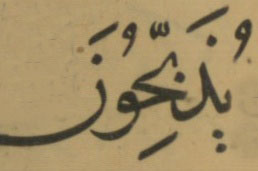 يُذَبِّحُونَ